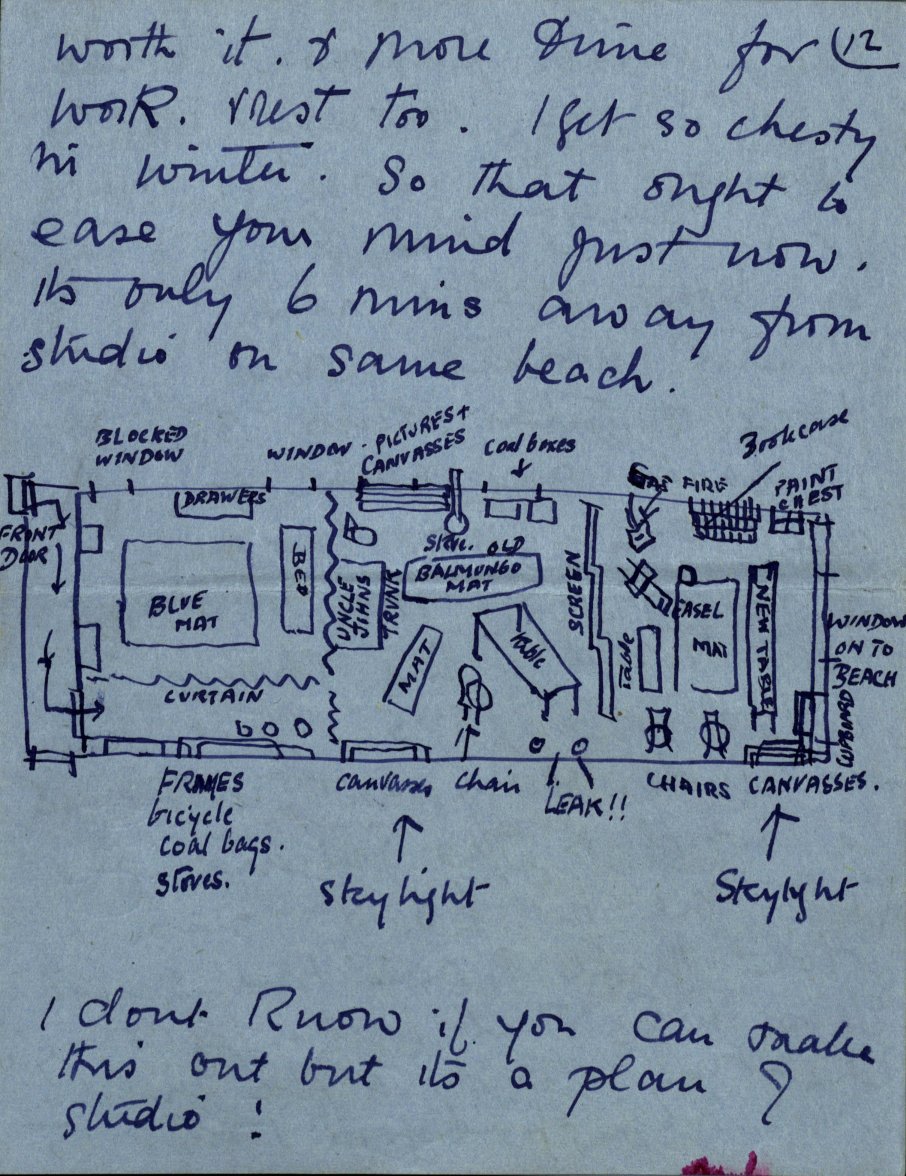 worth it. & more time for (12
work. & rest too. I get so chesty
in winter. So that ought to
ease your mind just now.
its only 6 mins away from
studio on same beach.
BLOCKED
WINDOW
WINDOW.
PICTURES +
CANVASSES
Coal boxes
Bookcase
GAS FIRE
PAINT
CHEST
FRONT
DOOR
DRAWERS
BED
BLUE
MAT
UNCLE
JOHNS
TRUNK
OLD
BALMUNGO
MAT
SCREEN
EASEL
MAT
NEW TABLE
WINDOW
ON TO
BEACH
CURTAIN
MAT
Table
Table
CUPBOARD
FRAMES
bicycle
coal bags.
stoves.
canvasses
chair
LEAK!!
CHAIRS
CANVASSES.
Skylight
Skylight
I dont know if you can make
this out but its a plan of
studio!